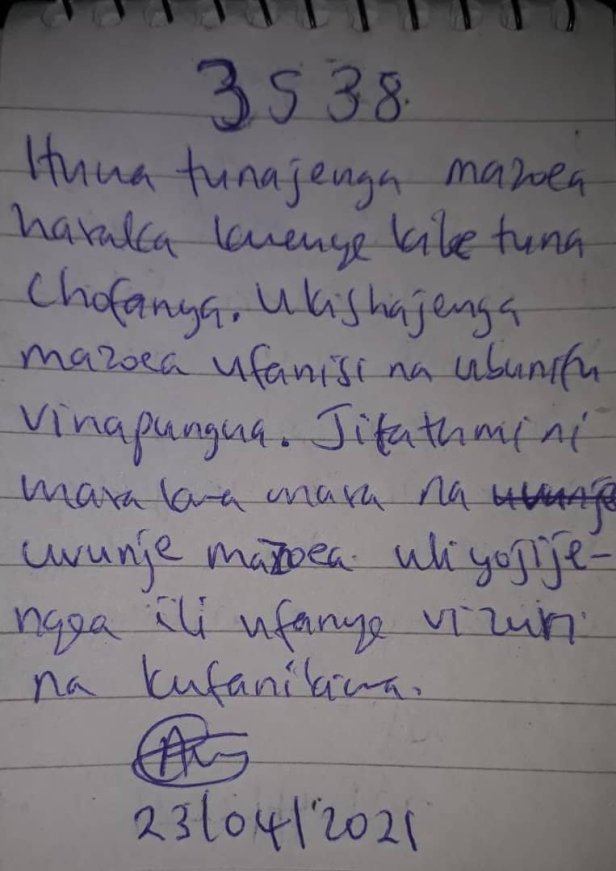 3538
Huwa tunajenga mazoea
haraka kwenye kile tuna
chofanya. Ukishajenga
mazoea ufanisi na ubunifu
vinapungua. Jifathmini
mara kwa mara na uvunje
uvunje mazoea uliyojije-
ngea ili ufanye vizuri
na kufanikiwa.
23/04/2021